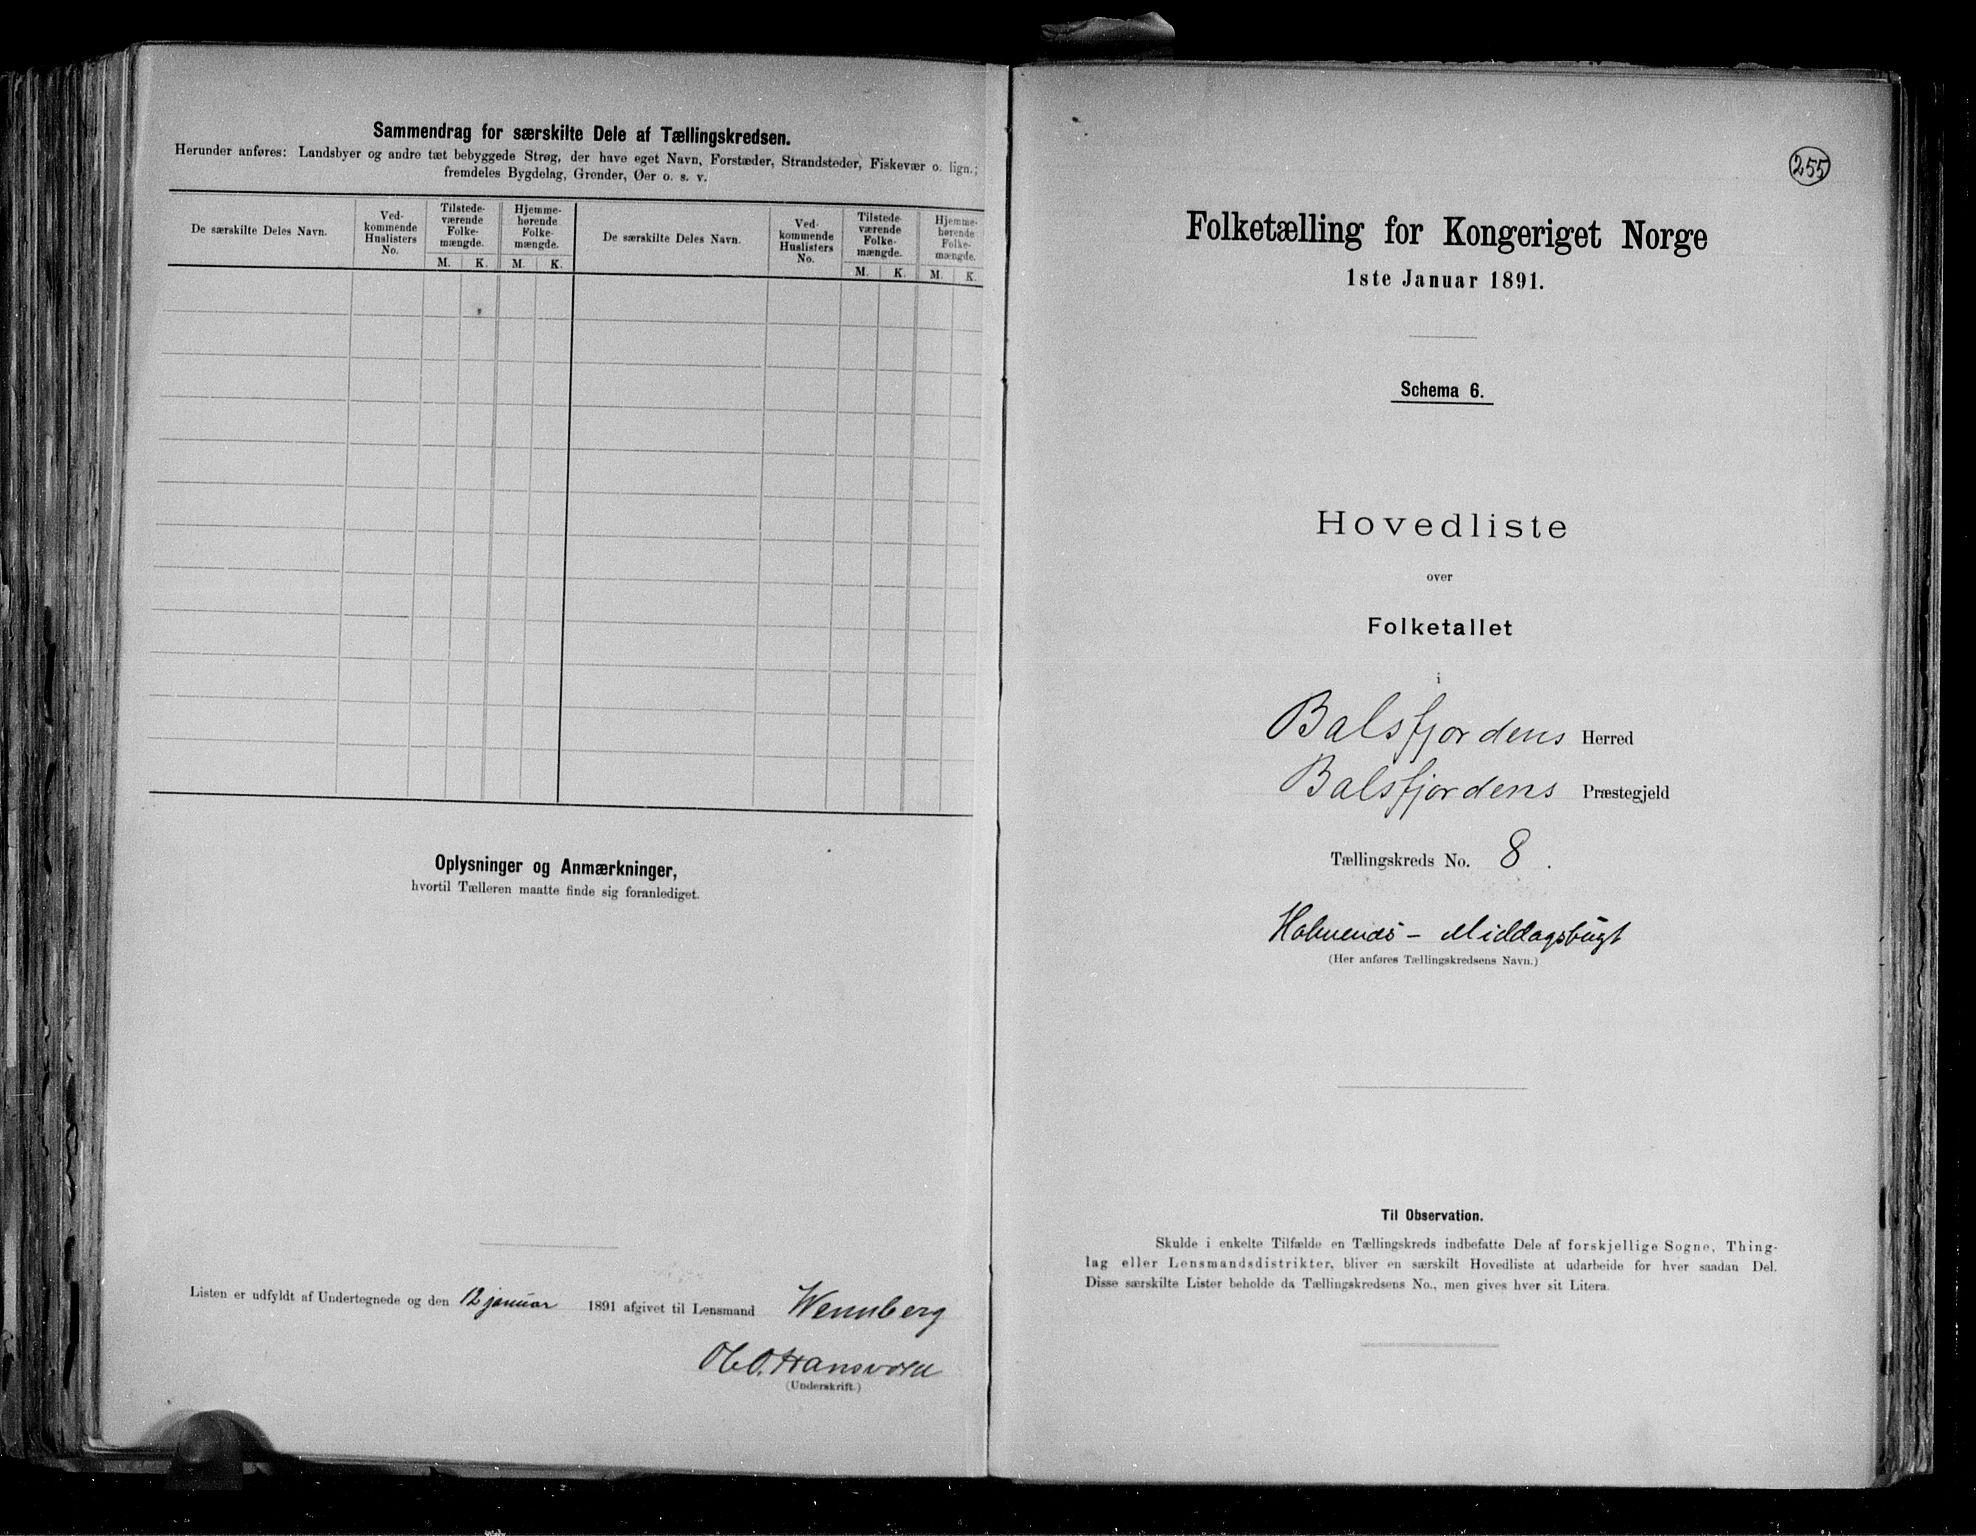 Sammendrag for særskilte Dele af Tællingskredsen.
Herunder anføres: Landsbyer og andre tæt bebyggede Strøg, der have eget Navn, Forstæder, Strandsteder, Fiskevær o. lign.;
fremdeles Bygdelag, Grender, Øer o. s. v.
De særskilte Deles Navn.
Ved-
kommende
Huslisters
No.
Tilstede-
værende
Folke-
mængde.
Hjemme-
hørende
Folke-
mængde.
M. K. M. K.
De særskilte Deles Navn.
Ved-
kommende
Huslisters
No.
Tilstede-
værende
Folke-
mængde.
Hjemme-
hørende
Folke-
mængde.
M. K. M. K.
Oplysninger og Anmærkninger,
hvortil Tælleren maatte finde sig foranlediget.
Listen er udfyldt af Undertegnede og den 12 januar 1891 afgivet til Lensmand Wennberg
(Underskrift.)
255
Folketælling for Kongeriget Norge
1ste Januar 1891.
Schema 6.
Hovedliste
over
Folketallet
i
Balsfjordens Herred
Balsfjordens Præstegjeld
Tællingskreds No. 8.
Holmenes - Middagsbugt
(Her anføres Tællingskredsens Navn.)
Til Observation.
Skulde i enkelte Tilfælde en Tællingskreds indbefatte Dele af forskjellige Sogne, Thing-
lag eller Lensmandsdistrikter, bliver en særskilt Hovedliste at udarbeide for hver saadan Del.
Disse særskilte Lister beholde da Tællingskredsens No., men gives hver sit Litera.